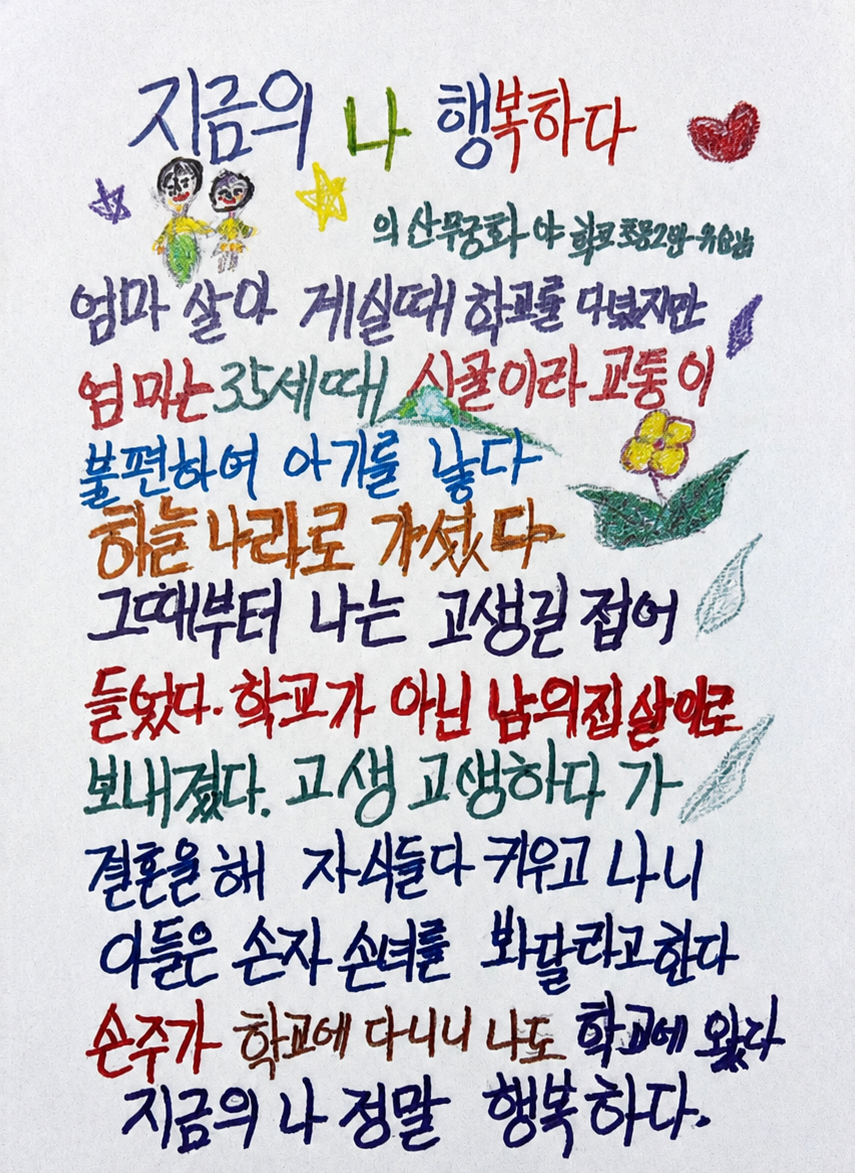 지금의 나 행복하다
의 산무궁화 야 학교 초등2반-유
엄마 살아 계실때 학교를 다녔지만
엄마는 35세때 시골이라 교통이
불편하여 아기를 낳다
하늘나라로 가셨다
그때부터 나는 고생길 접어
들었다. 학교가 아닌 남의집살이로
보내졌다. 고생 고생하다 가
결혼을 해 자식들다 키우고 나니
아들은 손자 손녀를 봐달라고한다
손주가 학교에 다니니 나도 학교에 왔다
지금의 나 정말 행복하다.